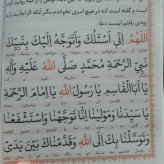 است و گفته است که در هیچ امری نخوانده‌ام مگر آنکه اثر اجابت را به
زودی یافتم اینست دعا
اَللّٰهُمَّ اِنّی اَسْئَلُكَ وَاَتَوَجَّهُ اِلَيْكَ بِنَبِيِّكَ
نَبِيِّ الرَّحْمَةِ مُحَمَّدٍ صَلَّى اللهُ عَلَيْهِ وَآلِهِ
يا اَبَا الْقاسِمِ يا رَسُولَ اللهِ يا اِمامَ الرَّحْمَةِ
يا سَيِّدَنا وَمَوْلينا اِنّا تَوَجَّهْنا وَاسْتَشْفَعْنا
وَتَوَسَّلْنا بِكَ اِلَى اللهِ وَقَدَّمْناكَ بَيْنَ يَدَىْ